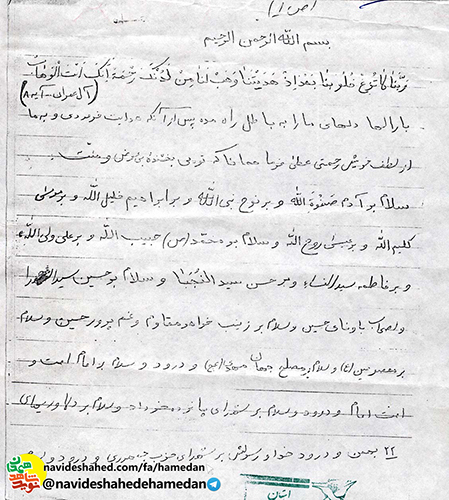 (ص ۱)
بسم الله الرحمن الرحیم
ربنا لا تزغ قلوبنا بعد اذ هدیتنا وهب لنا من لدنک رحمة انک انت الوهاب
(آل عمران - آیه ۸)
بارالها دلهای ما را به باطل راه مده پس از آنکه هدایت فرمودی و به ما
از لطف خویش رحمتی عطا فرما همانا که توئی بخشنده بی عوض و منت.
سلام بر آدم صفوة الله و بر نوح نبی الله و بر ابراهیم خلیل الله و بر موسی
کلیم الله و بر عیسی روح الله و سلام بر محمد (ص) حبیب الله و بر علی ولی الله
و بر فاطمه سید النساء و بر حسن سید النجبا و سلام بر حسین سید الشهدا
و اصحاب باوفای حسین و سلام بر زینب خواهر مقاوم و غم پرور حسین و سلام
بر معصومین (ع) و سلام بر مصلح جهان مهدی (عج) و درود و سلام بر امام امت و
امت امام و درود و سلام بر شهدای پانزده خرداد و سلام بر دلاوریهای
۲۲ بهمن و درود خدا و رسولش بر شهدای حزب جمهوری و درود و
navideshahed.com/fa/hamedan
@navideshahedehamedan
استان